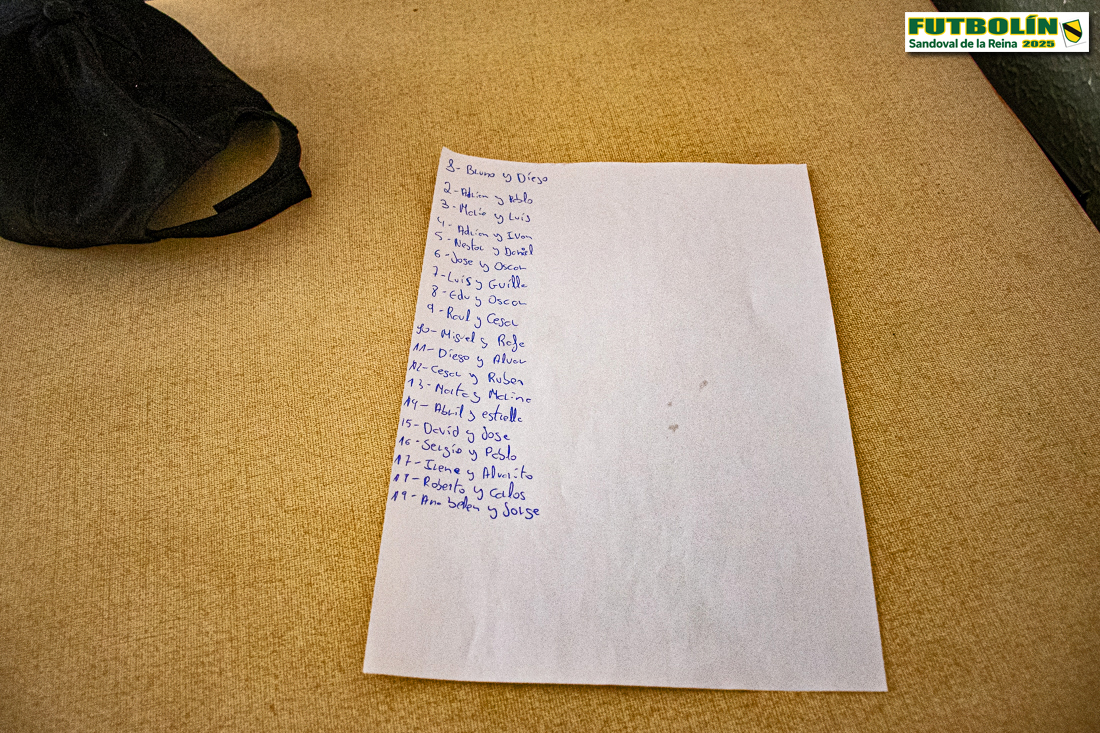 FUTBOLÍN
Sandoval de la Reina 2025
1- Bruno y Diego
2- Adrian y Pablo
3- Mario y Luis
4- Adrian y Ivan
5- Nestor y Daniel
6- Jose y Oscar
7- Luis y Guille
8- Edu y Oscar
9- Raul y Cesar
10- Miguel y Rafa
11- Diego y Alvar
12- Cesar y Ruben
13- Marta y Marina
14- Abril y estrella
15- David y Jose
16- Sergio y Pablo
17- Irene y Alvarito
18- Roberto y Carlos
19- Ana belen y Jorge